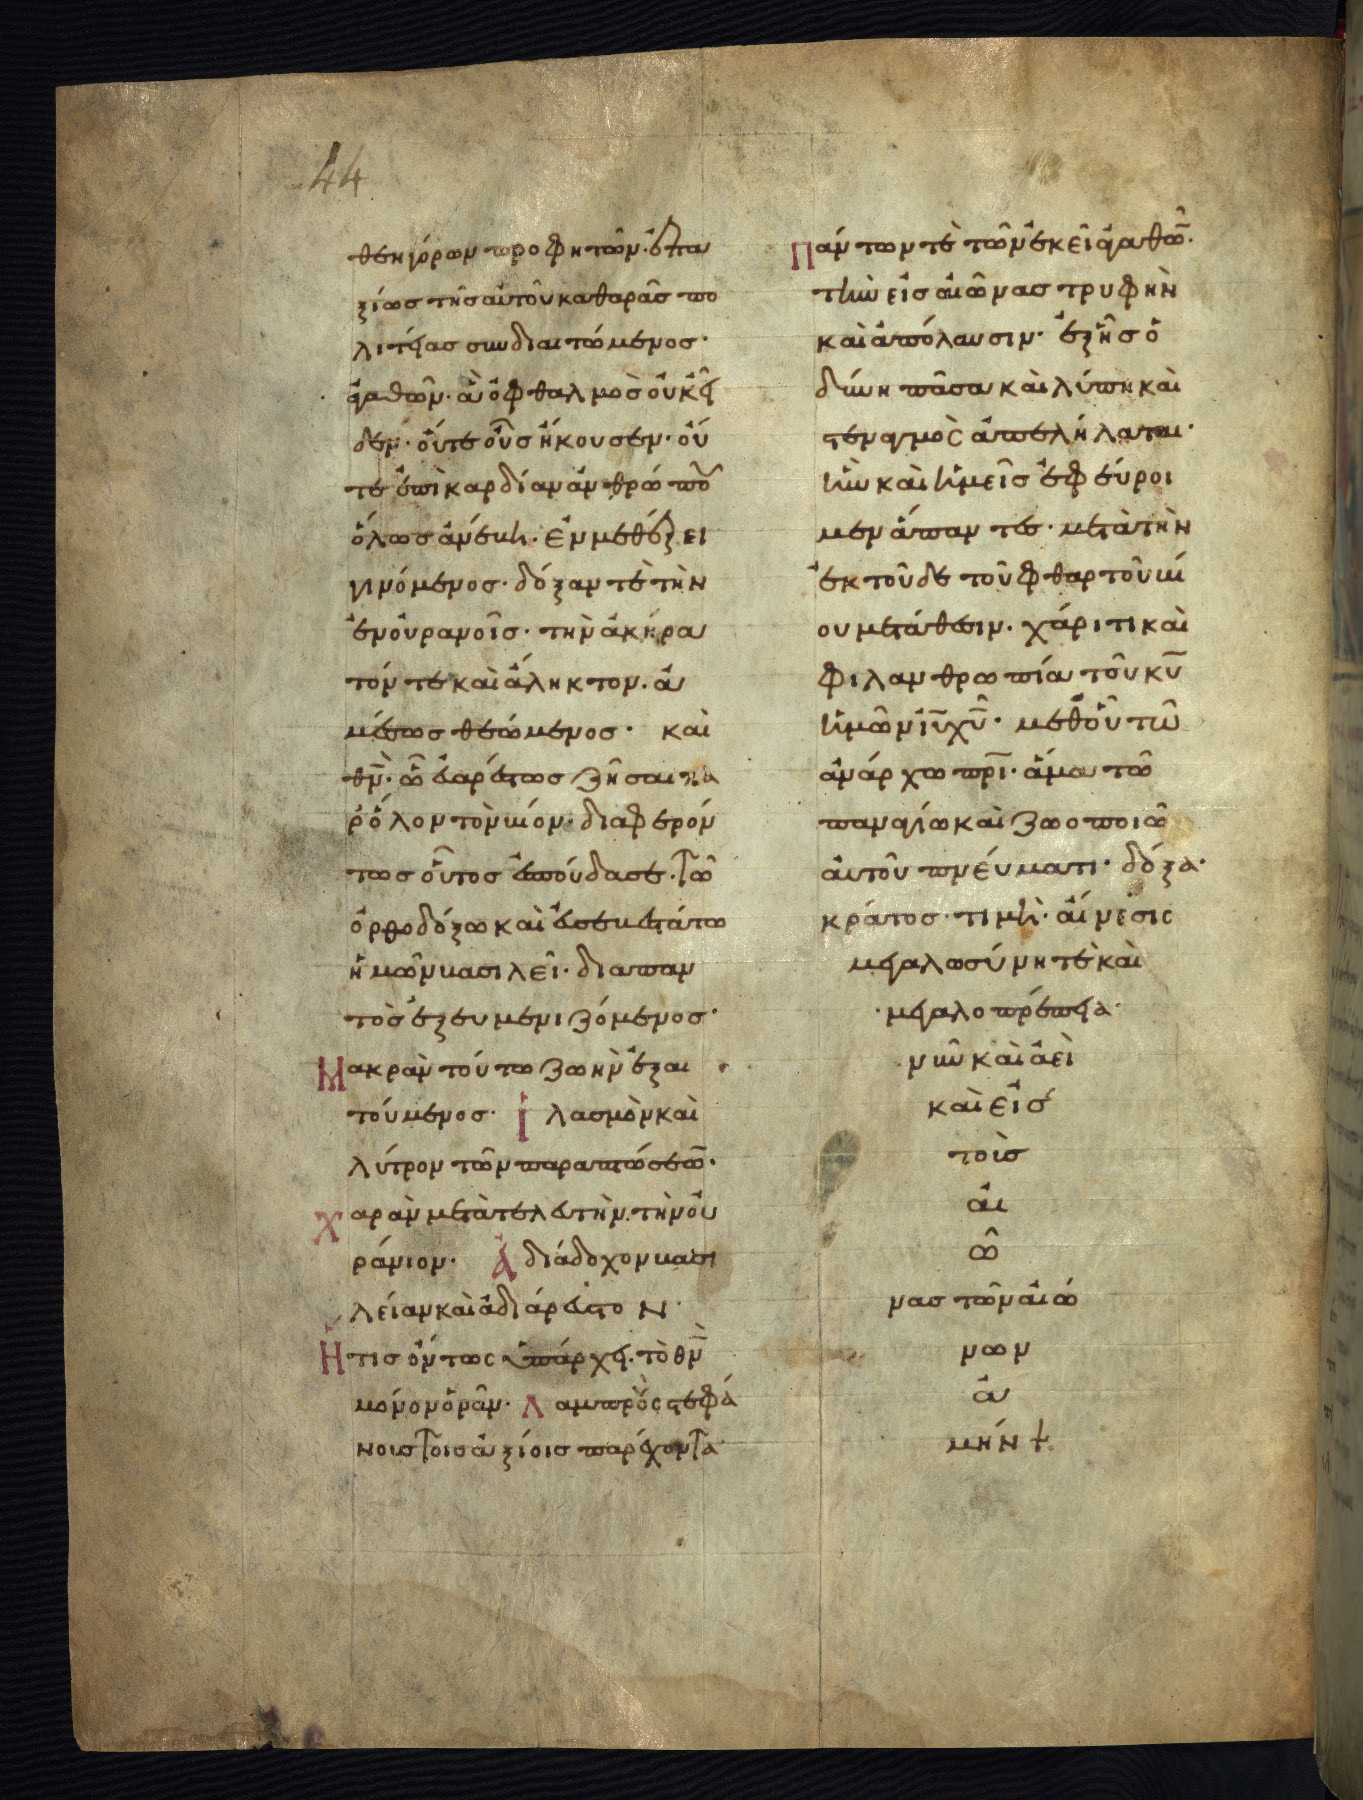 44
θεηγόρων προφητῶν· ἐπα
ξίως τῆς αὐτοῦ καθαρᾶς πο
λιτείας συνδιαιτώμενος·
ἀγαθῶν· ἃ ὀφθαλμὸς οὐκ εἶ
δεν· οὔτε οὖς ἤκουσεν· οὔ
τε ἐπὶ καρδίαν ἀνθρώπου
ὅλως ἀνέβη· ἐν μεθέξει
γινόμενος· δόξαν τὲ τὴν
ἐν οὐρανοῖς· τὴν ἀκήρα
τόν τε καὶ ἄληκτον· ἀ
μέσως θεώμενος· καὶ
θῡ· ᾧ εὐαρέστως ζῆσαι πα
ρ ὅλον τὸν βίον· διαφερόν
τως οὗτος ἐσπούδασε· τῶ
ὀρθοδόξω καὶ εὐσεβεστάτω
ἡμῶν βασιλεῖ· διαπαν
τὸς ἐξευμενιζόμενος·
Μακρὰν τούτω ζωὴν ἐξαι
τούμενος· ἱλασμὸν καὶ
λύτρον τῶν παραπτώσεων·
χαρὰν μετὰ τελευτὴν τὴν οὐ
ράνιον· Ἀδιάδοχον βασι
λείαν καὶ ἀδιάρευστον·
Ἥτις ὄντως ὑπάρχει· τὸ θν̄
μόνον ὁρᾶν· Λαμπροὺς στεφά
νους τοῖς ἀξίοις παρέχοντα
Πάντων τὲ τῶν ἐκεῖ ἀγαθῶν·
τὴν εἰς αἰῶνας τρυφὴν
καὶ ἀπόλαυσιν· ἐξ ἧς ὀ
δύνη πᾶσα καὶ λύπη καὶ
στεναγμὸς ἀπελήλαται·
ἣν καὶ ἡμεῖς ἐφεύροι
μεν ἅπαντες· μετὰ τὴν
ἐκ τοῦδε τοῦ φθαρτοῦ βί
ου μετάθεσιν· χάριτι καὶ
φιλανθρωπία τοῦ κῡ
ἡμῶν ῑῡ χῡ· μεθ οὗ τῶ
ἀνάρχω πρ̄ι· ἅμα τῶ
παναγίω καὶ ζωοποιῶ
αὐτοῦ πνεύματι· δόξα·
κράτος· τιμὴ· αἴνεσις
μεγαλωσύνη τὲ καὶ
·μεγαλοπρέπεια·
νῦν καὶ ἀεὶ
καὶ εἰς
τοὺς
αἰ
ῶ
νας τῶν αἰώ
νων
ἀ
μήν +